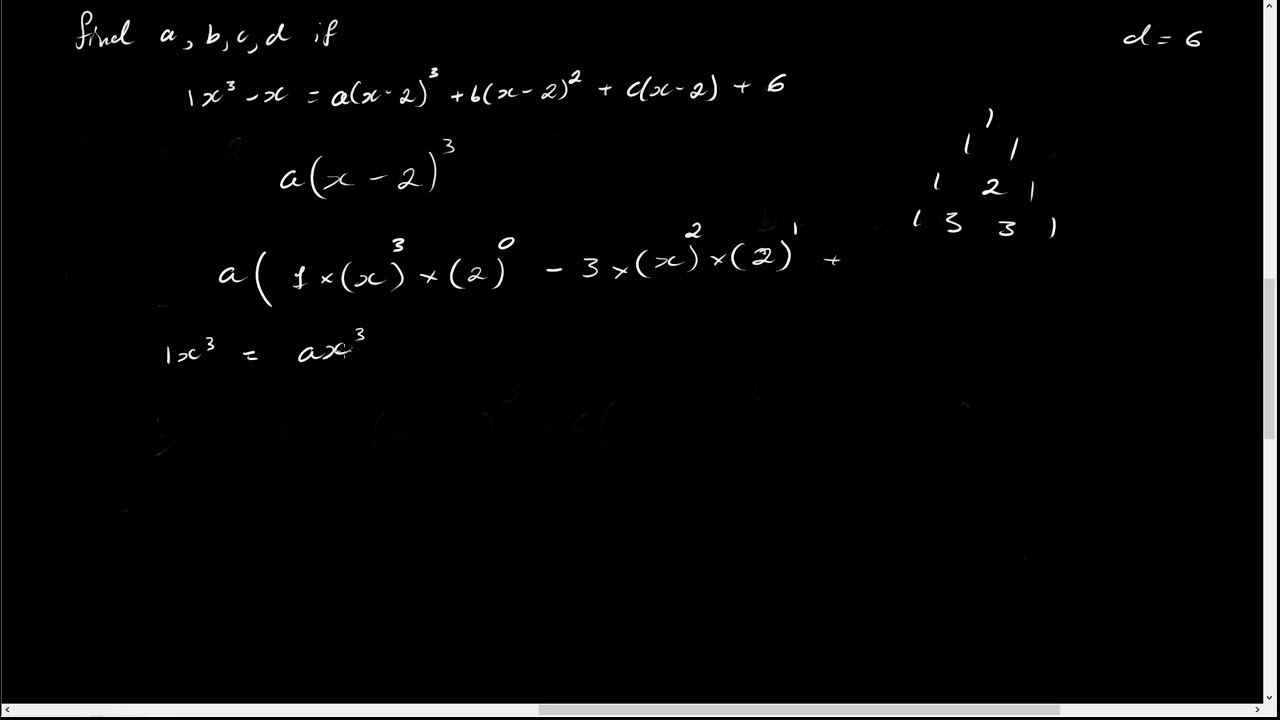 find a, b, c, d if
d = 6
1x³ - x = a(x-2)³ + b(x-2)² + c(x-2) + 6
a(x - 2)³
1
1 1
1 2 1
1 3 3 1
a( 1 × (x)³ × (2)⁰ - 3 × (x)² × (2)¹ +
1x³ = ax³